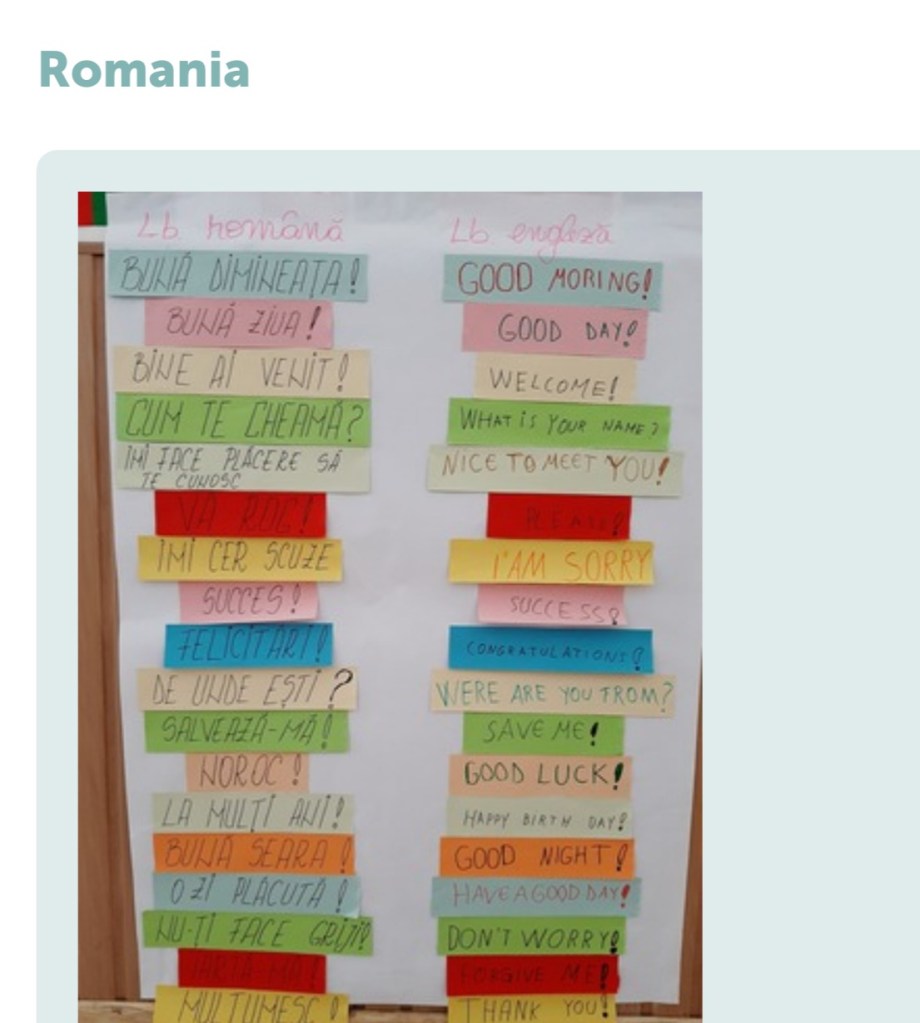 Romania
Lb română
Lb engleză
BUNĂ DIMINEAȚA!
GOOD MORING!
BUNĂ ZIUA!
GOOD DAY!
BINE AI VENIT!
WELCOME!
CUM TE CHEAMĂ?
WHAT IS YOUR NAME?
ÎMI FACE PLĂCERE SĂ
TE CUNOSC
NICE TO MEET YOU!
VĂ ROG!
PLEASE!
ÎMI CER SCUZE
I'AM SORRY
SUCCES!
SUCCESS!
FELICITĂRI!
CONGRATULATIONS!
DE UNDE EȘTI?
WERE ARE YOU FROM?
SALVEAZĂ-MĂ!
SAVE ME!
NOROC!
GOOD LUCK!
LA MULȚI ANI!
HAPPY BIRTH DAY!
BUNĂ SEARA!
GOOD NIGHT!
O ZI PLĂCUTĂ!
HAVE A GOOD DAY!
NU-ȚI FACE GRIJI!
DON'T WORRY!
IARTĂ-MĂ!
FORGIVE ME!
MULȚUMESC!
THANK YOU!